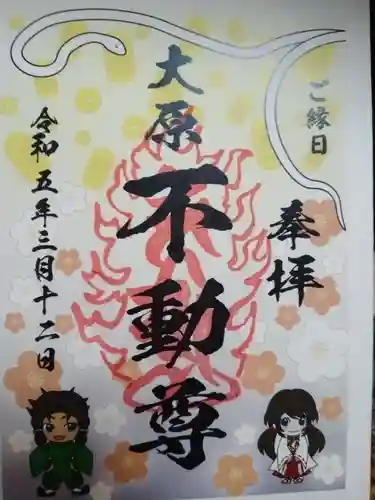 ご縁日
奉拝
大原
不動尊
令和五年三月十二日